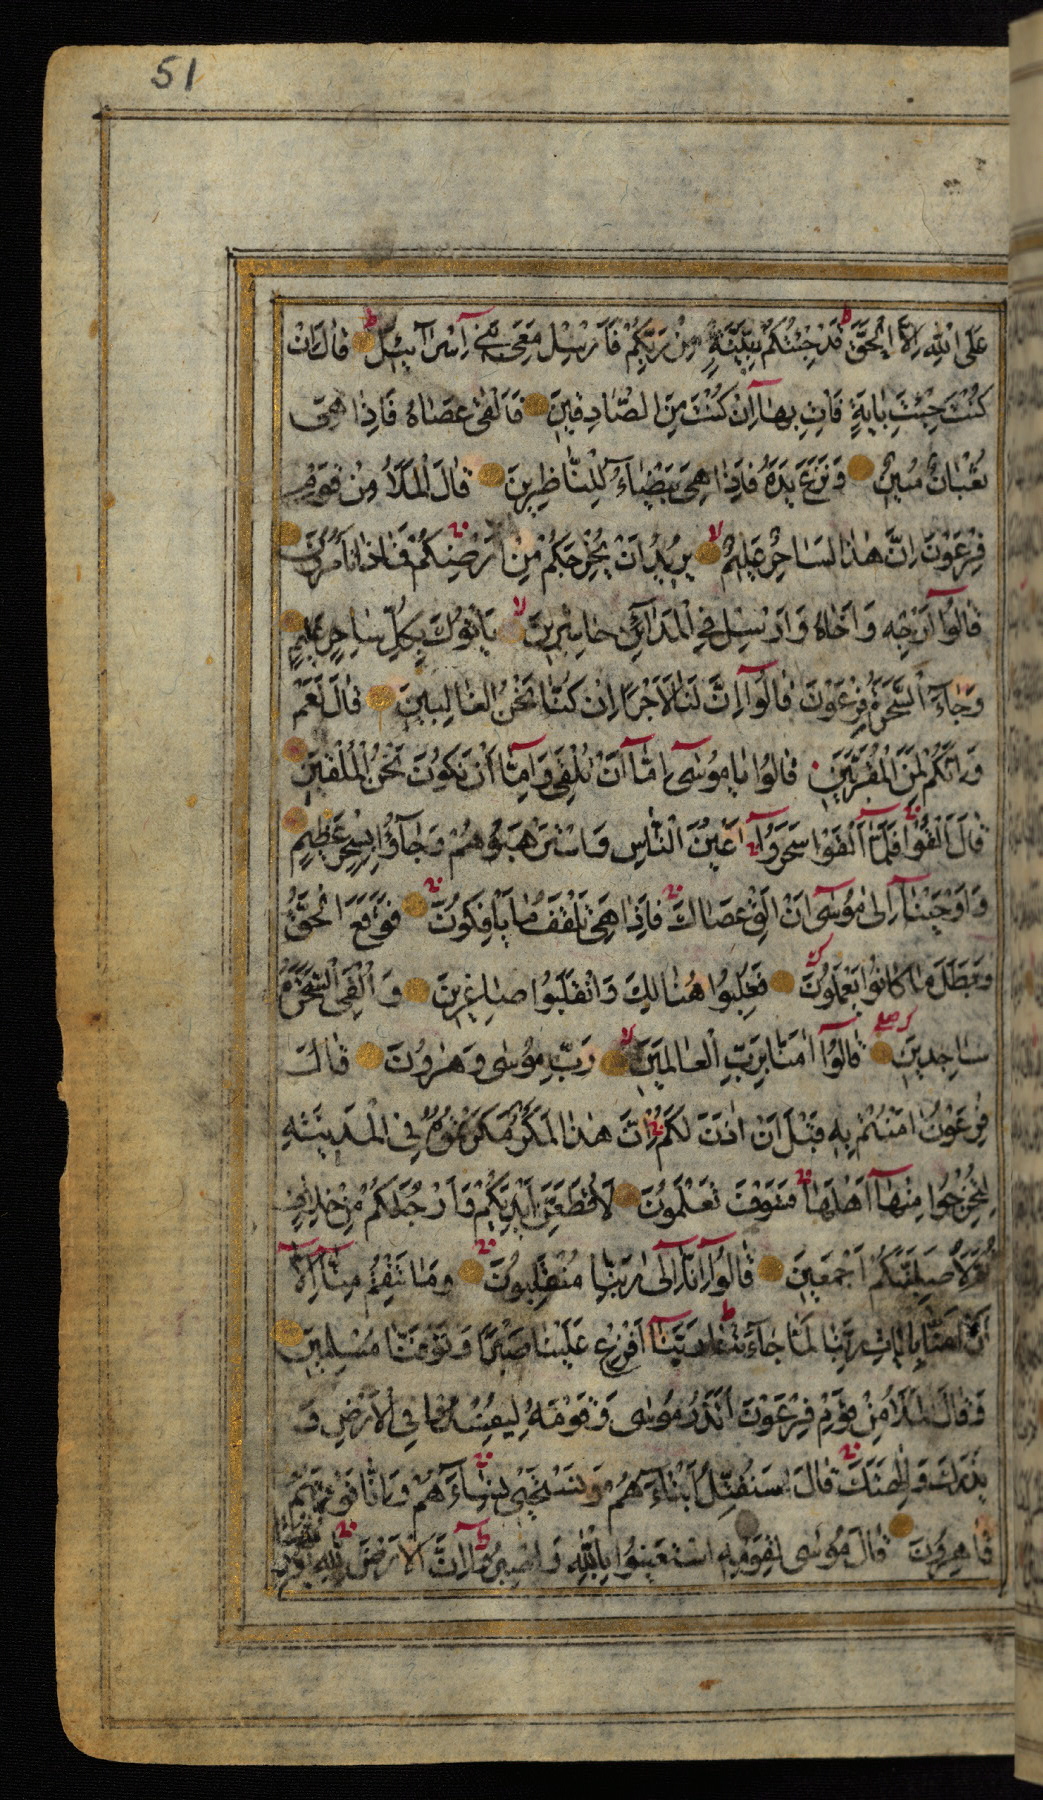 51
عَلَى اللّٰهِ اِلَّا الْحَقَّ قَدْ جِئْتُكُمْ بِبَيِّنَةٍ مِنْ رَبِّكُمْ فَاَرْسِلْ مَعِىَ بَنِىٓ اِسْرَآئِيْلَ قَالَ اِنْ
كُنْتَ جِئْتَ بِاٰيَةٍ فَاْتِ بِهَآ اِنْ كُنْتَ مِنَ الصَّادِقِيْنَ فَاَلْقٰى عَصَاهُ فَاِذَا هِىَ
ثُعْبَانٌ مُبِيْنٌ وَنَزَعَ يَدَهُ فَاِذَا هِىَ بَيْضَآءُ لِلنَّاظِرِيْنَ قَالَ الْمَلَاُ مِنْ قَوْمِ
فِرْعَوْنَ اِنَّ هٰذَا لَسَاحِرٌ عَلِيْمٌ يُرِيْدُ اَنْ يُخْرِجَكُمْ مِنْ اَرْضِكُمْ فَمَاذَا تَاْمُرُوْنَ
قَالُوْآ اَرْجِهْ وَاَخَاهُ وَاَرْسِلْ فِى الْمَدَآئِنِ حَاشِرِيْنَ يَاْتُوْكَ بِكُلِّ سَاحِرٍ عَلِيْمٍ
وَجَآءَ السَّحَرَةُ فِرْعَوْنَ قَالُوْآ اِنَّ لَنَا لَاَجْرًا اِنْ كُنَّا نَحْنُ الْغَالِبِيْنَ قَالَ نَعَمْ
وَاِنَّكُمْ لَمِنَ الْمُقَرَّبِيْنَ قَالُوْا يَا مُوْسٰىٓ اِمَّآ اَنْ تُلْقِىَ وَاِمَّآ اَنْ نَكُوْنَ نَحْنُ الْمُلْقِيْنَ
قَالَ اَلْقُوْا فَلَمَّآ اَلْقَوْا سَحَرُوْآ اَعْيُنَ النَّاسِ وَاسْتَرْهَبُوْهُمْ وَجَآؤُا بِسِحْرٍ عَظِيْمٍ
وَاَوْحَيْنَآ اِلٰى مُوْسٰىٓ اَنْ اَلْقِ عَصَاكَ فَاِذَا هِىَ تَلْقَفُ مَا يَاْفِكُوْنَ فَوَقَعَ الْحَقُّ
وَبَطَلَ مَا كَانُوْا يَعْمَلُوْنَ فَغُلِبُوْا هُنَالِكَ وَانْقَلَبُوْا صَاغِرِيْنَ وَاُلْقِىَ السَّحَرَةُ
سَاجِدِيْنَ قَالُوْآ اٰمَنَّا بِرَبِّ الْعَالَمِيْنَ رَبِّ مُوْسٰى وَهٰرُوْنَ قَالَ
فِرْعَوْنُ اٰمَنْتُمْ بِهٖ قَبْلَ اَنْ اٰذَنَ لَكُمْ اِنَّ هٰذَا لَمَكْرٌ مَكَرْتُمُوْهُ فِى الْمَدِيْنَةِ
لِتُخْرِجُوْا مِنْهَآ اَهْلَهَا فَسَوْفَ تَعْلَمُوْنَ لَاُقَطِّعَنَّ اَيْدِيَكُمْ وَاَرْجُلَكُمْ مِنْ خِلَافٍ
ثُمَّ لَاُصَلِّبَنَّكُمْ اَجْمَعِيْنَ قَالُوْآ اِنَّآ اِلٰى رَبِّنَا مُنْقَلِبُوْنَ وَمَا تَنْقِمُ مِنَّآ اِلَّآ
اَنْ اٰمَنَّا بِاٰيَاتِ رَبِّنَا لَمَّا جَآءَتْنَا رَبَّنَآ اَفْرِغْ عَلَيْنَا صَبْرًا وَتَوَفَّنَا مُسْلِمِيْنَ
وَقَالَ الْمَلَاُ مِنْ قَوْمِ فِرْعَوْنَ اَتَذَرُ مُوْسٰى وَقَوْمَهُ لِيُفْسِدُوْا فِى الْاَرْضِ وَ
يَذَرَكَ وَاٰلِهَتَكَ قَالَ سَنُقَتِّلُ اَبْنَآءَهُمْ وَنَسْتَحْيِى نِسَآءَهُمْ وَاِنَّا فَوْقَهُمْ
قَاهِرُوْنَ قَالَ مُوْسٰى لِقَوْمِهِ اسْتَعِيْنُوْا بِاللّٰهِ وَاصْبِرُوْآ اِنَّ الْاَرْضَ لِلّٰهِ